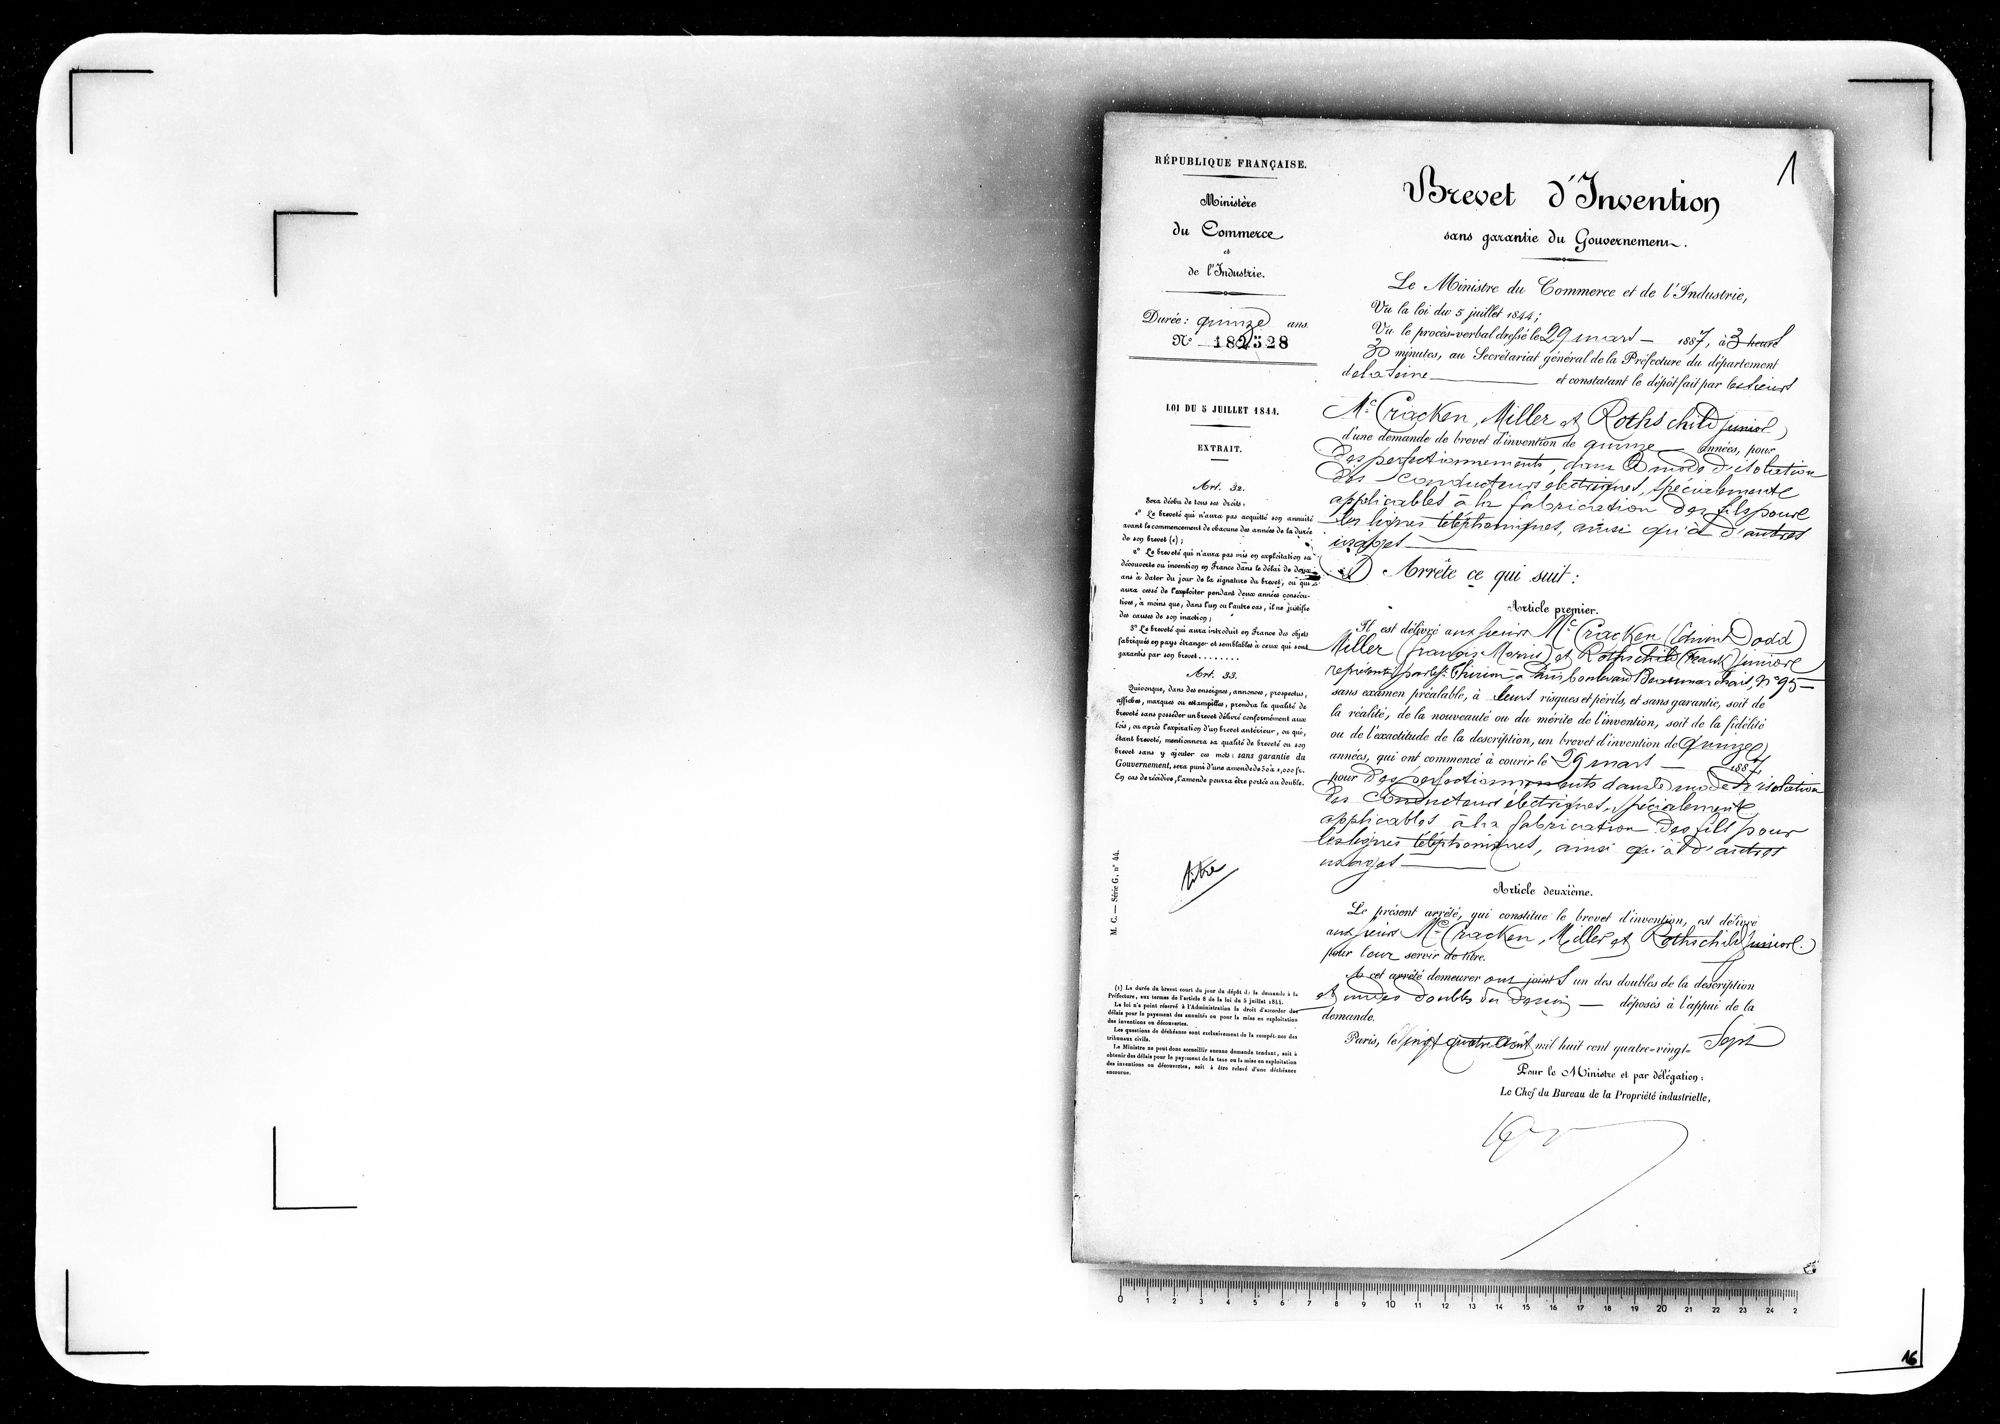 RÉPUBLIQUE FRANÇAISE.
Ministère
du Commerce
et
de l'Industrie.
Durée: quinze ans.
N° 182528
LOI DU 5 JUILLET 1844.
EXTRAIT.
Art. 32.
Sera déchu de tous ses droits:
1° Le breveté qui n'aura pas acquitté son annuité
avant le commencement de chacune des années de la durée
de son brevet (1);
2° Le breveté qui n'aura pas mis en exploitation sa
découverte ou invention en France dans le délai de deux
ans à dater du jour de la signature du brevet, ou qui
aura cessé de l'exploiter pendant deux années consécu-
tives, à moins que, dans l'un ou l'autre cas, il ne justifie
des causes de son inaction;
3° Le breveté qui aura introduit en France des objets
fabriqués en pays étranger et semblables à ceux qui sont
garantis par son brevet........
Art. 33.
Quiconque, dans des enseignes, annonces, prospectus,
affiches, marques ou estampilles, prendra la qualité de
breveté sans posséder un brevet délivré conformément aux
lois, ou après l'expiration d'un brevet antérieur, ou qui,
étant breveté, mentionnera sa qualité de breveté ou son
brevet sans y ajouter ces mots: sans garantie du
Gouvernement, sera puni d'une amende de 50 à 1,000 fr.
En cas de récidive, l'amende pourra être portée au double.
titre
M. C. — Série G, n° 44.
(1) La durée du brevet court du jour du dépôt de la demande à la
Préfecture, aux termes de l'article 8 de la loi du 5 juillet 1844.
La loi n'a point réservé à l'Administration le droit d'accorder des
délais pour le payement des annuités ou pour la mise en exploitation
des inventions ou découvertes.
Les questions de déchéance sont exclusivement de la compétence des
tribunaux civils.
Le Ministre ne peut donc accueillir aucune demande tendant, soit à
obtenir des délais pour le payement de la taxe ou la mise en exploitation
des inventions ou découvertes, soit à être relevé d'une déchéance
encourue.
1
Brevet d'Invention
sans garantie du Gouvernement.
Le Ministre du Commerce et de l'Industrie,
Vu la loi du 5 juillet 1844;
Vu le procès-verbal dressé le 29 mars 1887, à 3 heures
30 minutes, au Secrétariat général de la Préfecture du département
de la Seine et constatant le dépôt fait par les sieurs
Mc Cracken, Miller et Rothschild junior
d'une demande de brevet d'invention de quinze années, pour
des perfectionnements, dans le mode d'isolation
des conducteurs électriques, spécialement
applicables à la fabrication des fils pour
les lignes téléphoniques, ainsi qu'à d'autres
usages
Arrête ce qui suit:
Article premier.
Il est délivré aux sieurs Mc Cracken (Edwin Dodd)
Miller (Francis Morris) et Rothschild (Frank) junior
représentés par le sr Thirion, à Paris boulevard Beaumarchais, N° 95
sans examen préalable, à leurs risques et périls, et sans garantie, soit de
la réalité, de la nouveauté ou du mérite de l'invention, soit de la fidélité
ou de l'exactitude de la description, un brevet d'invention de quinze
années, qui ont commencé à courir le 29 mars 1887,
pour des perfectionnements dans le mode d'isolation
des conducteurs électriques, spécialement
applicables à la fabrication des fils pour
les lignes téléphoniques, ainsi qu'à d'autres
usages
Article deuxième.
Le présent arrêté, qui constitue le brevet d'invention, est délivré
aux sieurs Mc Cracken, Miller et Rothschild junior
pour leur servir de titre.
A cet arrêté demeureront joints un des doubles de la description
et un des doubles du dessin — déposés à l'appui de la
demande.
Paris, le vingt quatre Août mil huit cent quatre-vingt- Sept
Pour le Ministre et par délégation:
Le Chef du Bureau de la Propriété industrielle,
0 1 2 3 4 5 6 7 8 9 10 11 12 13 14 15 16 17 18 19 20 21 22 23 24 2
16